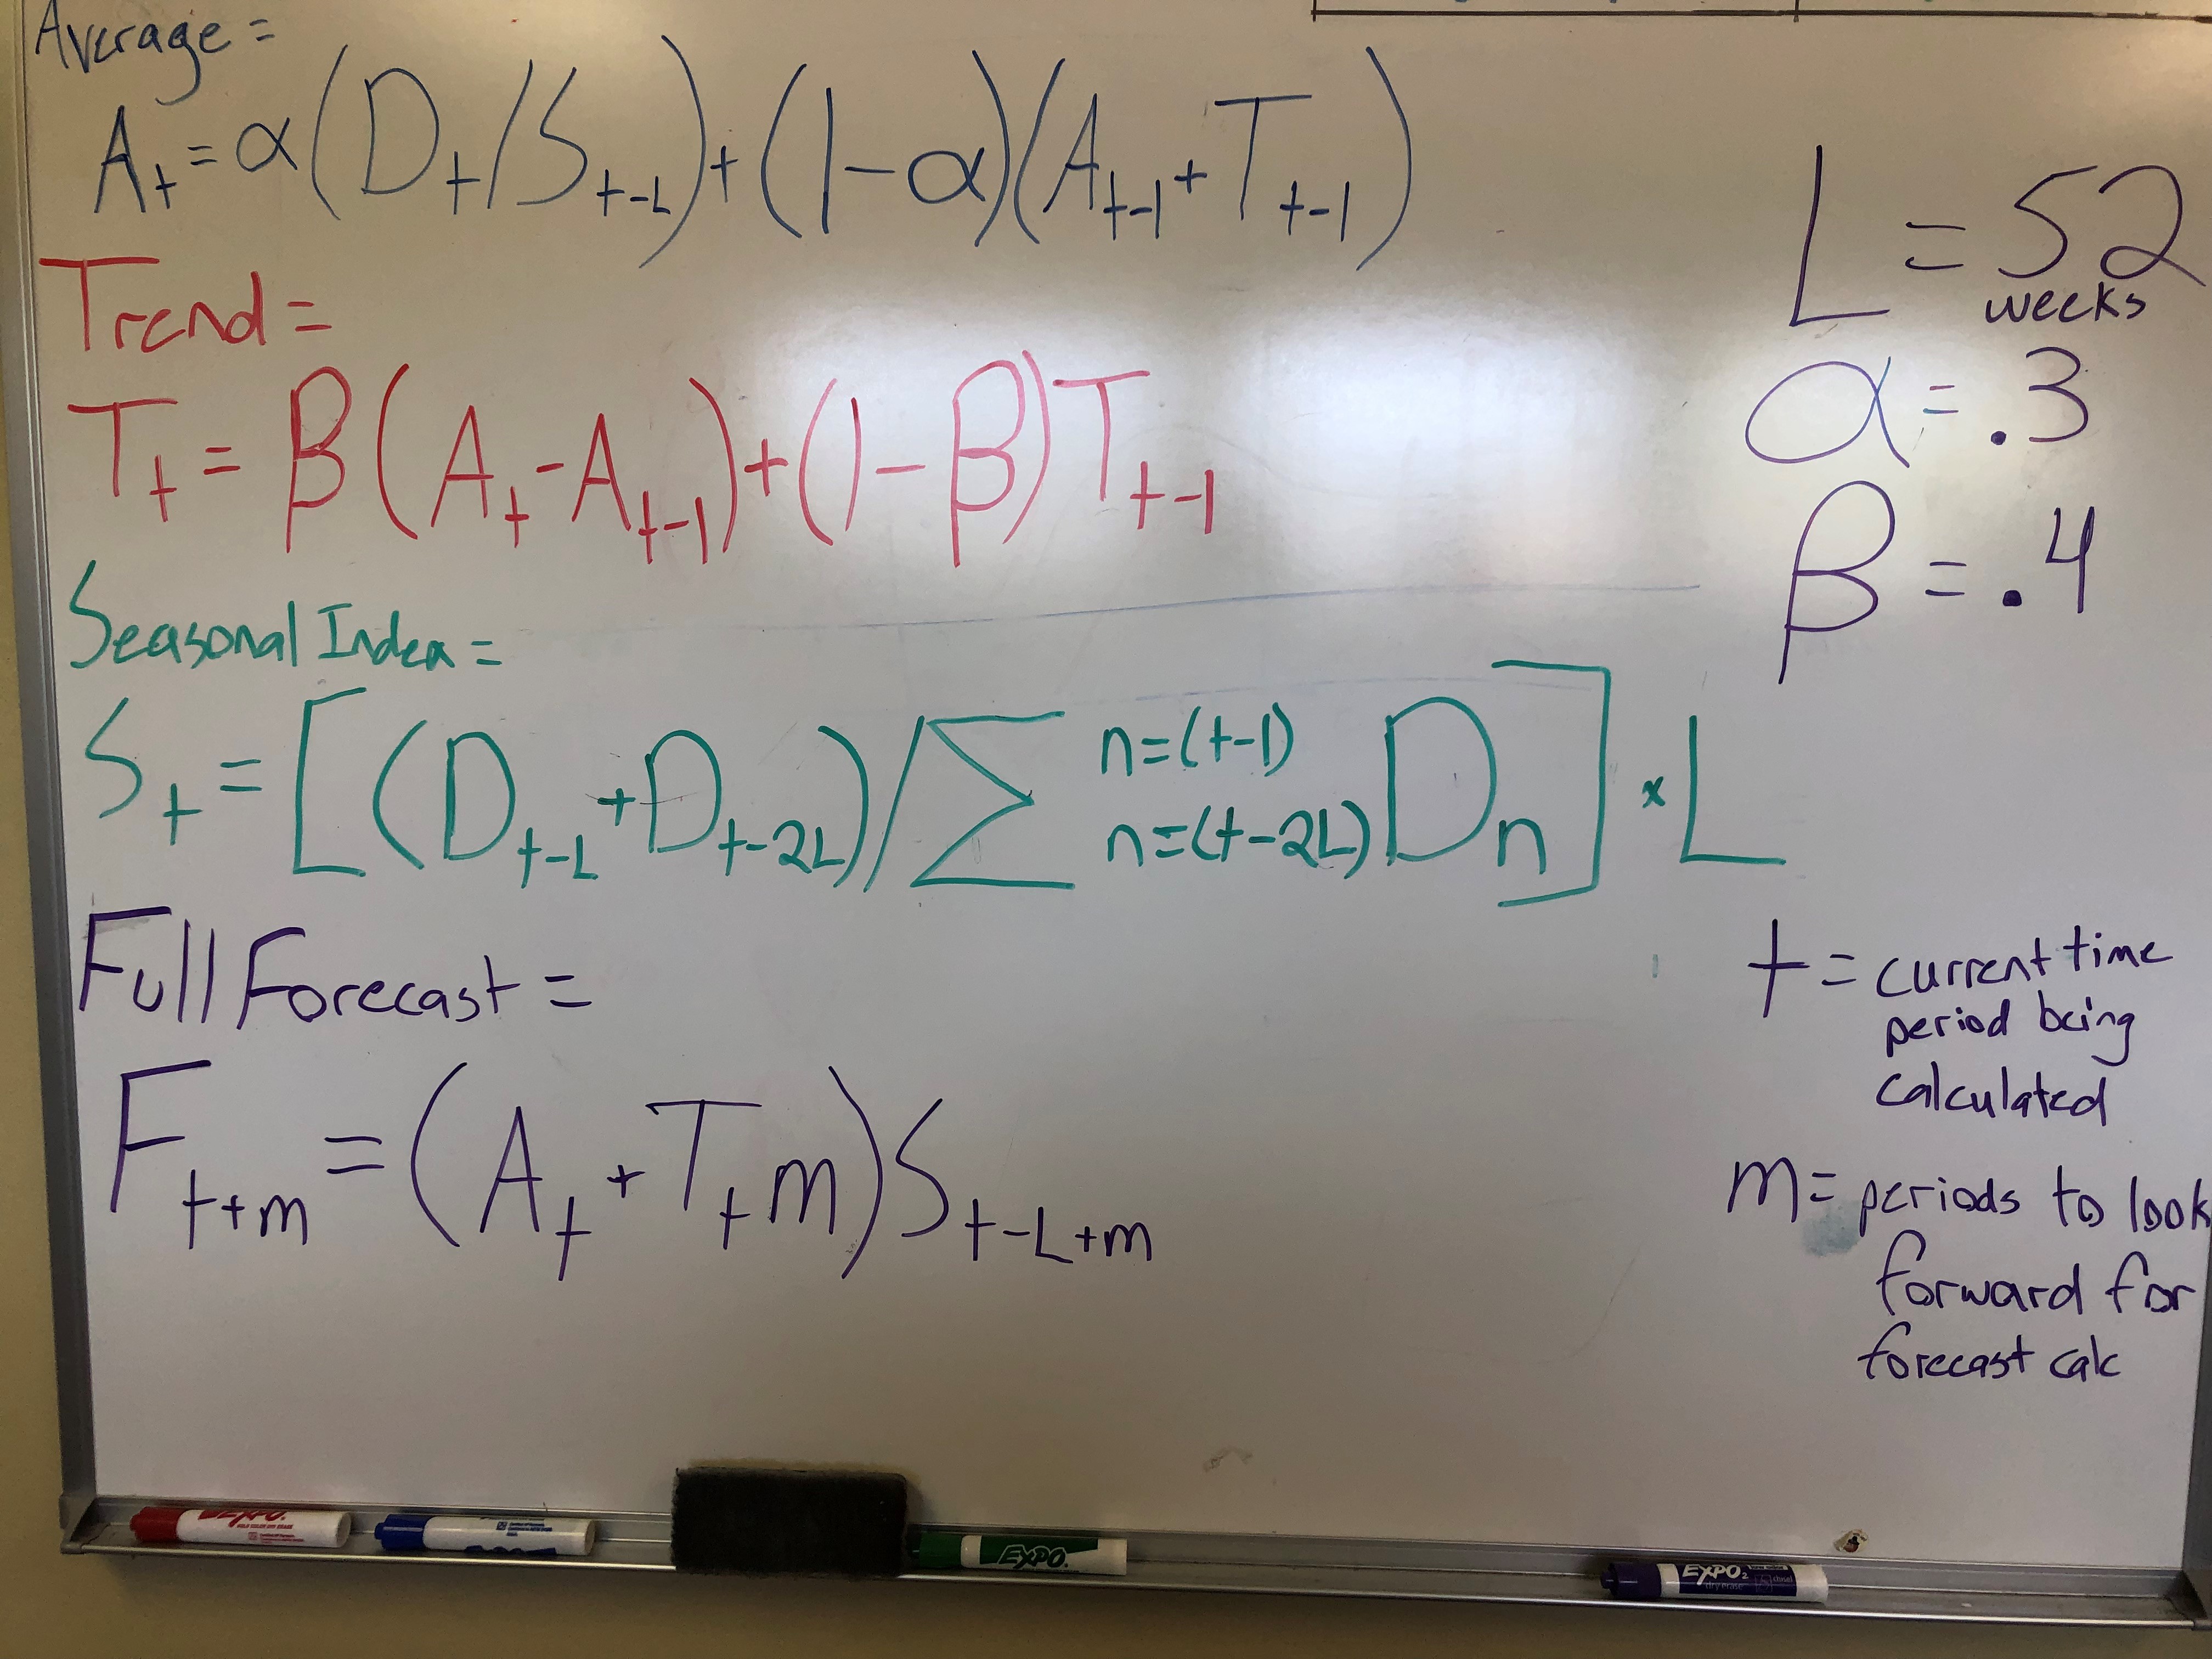 Average =
A_t = α(D_t/S_{t-L}) + (1-α)(A_{t-1} + T_{t-1})
Trend =
T_t = β(A_t - A_{t-1}) + (1-β)T_{t-1}
Seasonal Index =
S_t = [(D_{t-L} + D_{t-2L}) / Σ n=(t-1) n=(t-2L) D_n] x L
Full Forecast =
F_{t+m} = (A_t + T_t m) S_{t-L+m}
L = 52
weeks
α = .3
β = .4
t = current time
period being
calculated
m = periods to look
forward for
forecast calc
EXPO
EXPO
EXPO2
dry erase
chisel